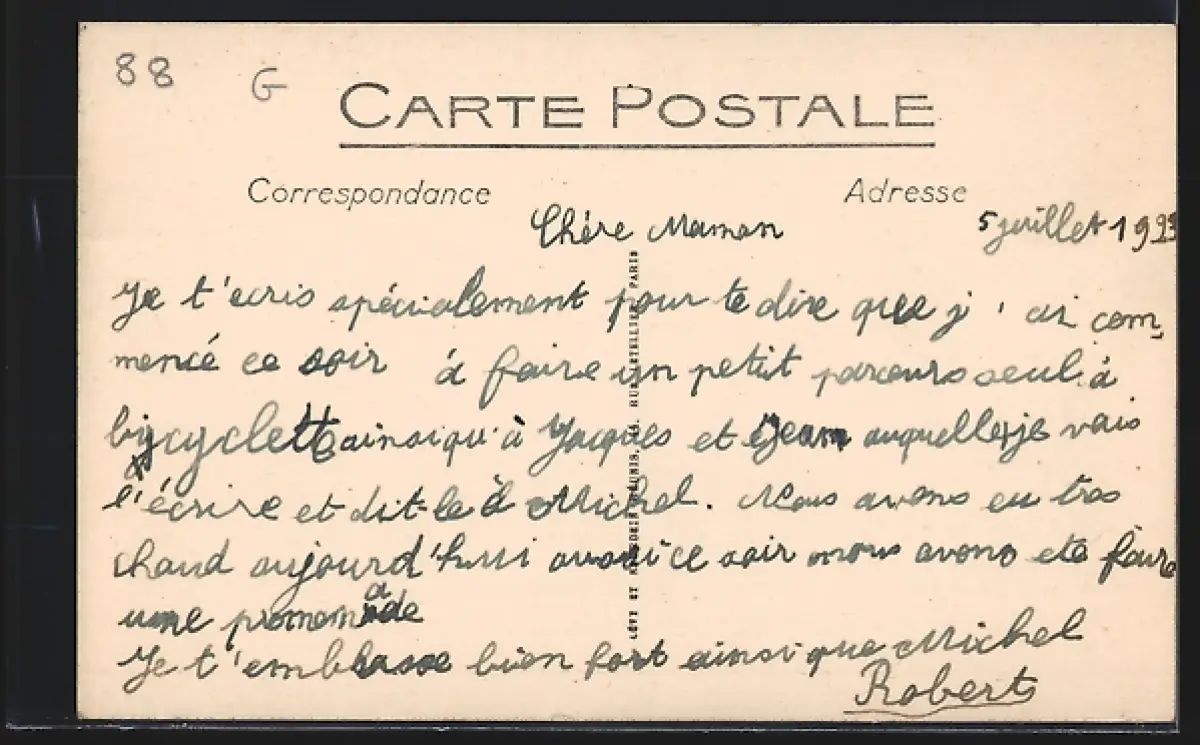 88 G
CARTE POSTALE
Correspondance Adresse
Chère Maman 5 juillet 1923
Je t'ecris spécialement pour te dire que j'ai com,
mencé ce soir à faire un petit parcours seul à
bicyclette ainsi qu'à Jacques et Jean auquelle je vais
l'écrire et dit-le à Michel. Nous avons eu tres
chaud aujourd'hui aussi ce soir nous avons eté faire
une promenade
Je t'embrasse bien fort ainsi que Michel
Robert
LÉVY ET NEURDEIN RÉUNIS, RUE LETELLIER, PARIS